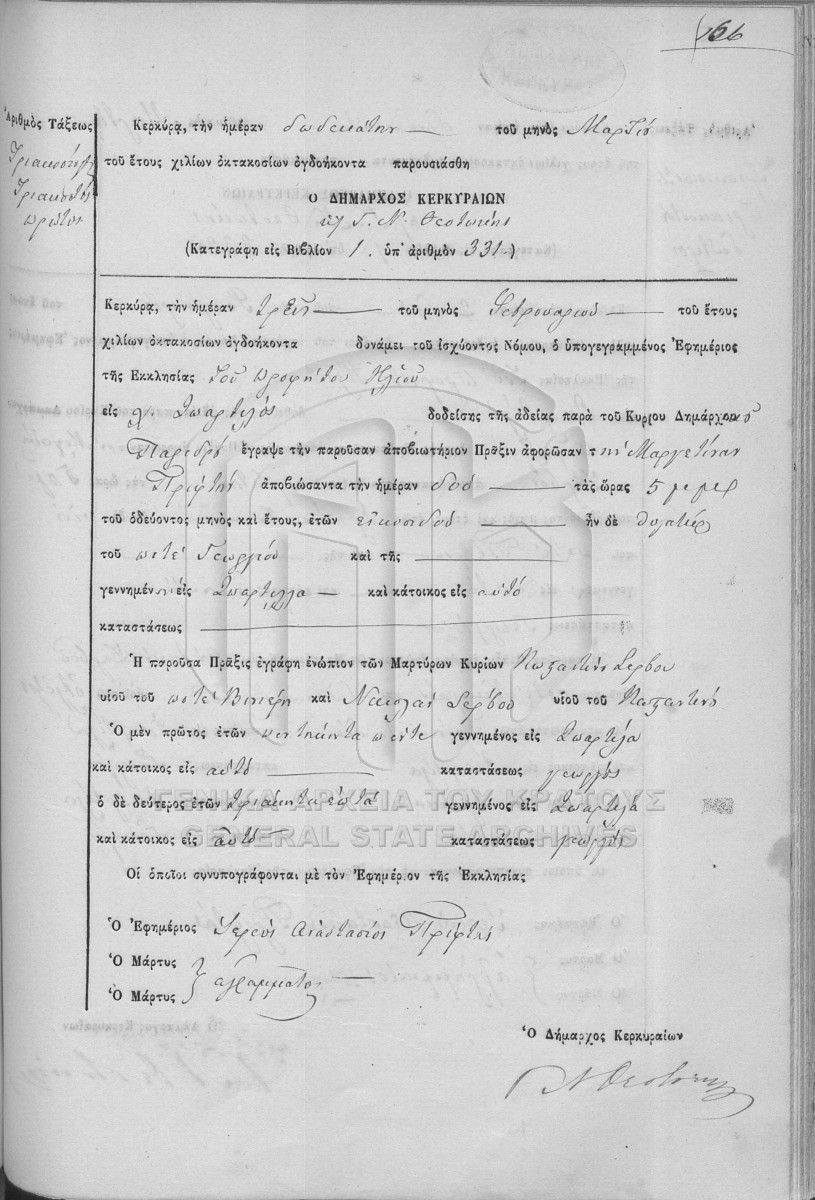 166
Ἀριθμὸς Τάξεως
Τριακοσιοστὸς
Τριακοστὸς
πρῶτος
Κερκύρᾳ, τὴν ἡμέραν δωδεκάτην τοῦ μηνὸς Μαρτίου
τοῦ ἔτους χιλίων ὀκτακοσίων ὀγδοήκοντα παρουσιάσθη
Ο ΔΗΜΑΡΧΟΣ ΚΕΡΚΥΡΑΙΩΝ
Γ. Ν. Θεοτόκης
(Κατεγράφη εἰς Βιβλίον 1. ὑπ' ἀριθμὸν 331.)
Κερκύρᾳ, τὴν ἡμέραν τρεῖς τοῦ μηνὸς Φεβρουαρίου τοῦ ἔτους
χιλίων ὀκτακοσίων ὀγδοήκοντα δυνάμει τοῦ ἰσχύοντος Νόμου, ὁ ὑπογεγραμμένος Ἐφημέριος
τῆς Εκκλησίας τοῦ Προφήτου Ηλιοῦ
εἰς χ. Σπαρτύλος δοδείσης τῆς ἀδείας παρὰ τοῦ Κυρίου Δημάρχου
Παρέδρου ἔγραψε τὴν παροῦσαν ἀποβιωτήριον Πρᾶξιν ἀφορῶσαν τὴν Μαργετίναν
Πρίφτη ἀποβιώσαντα τὴν ἡμέραν δύο τὰς ὥρας 5 μ. μ.
τοῦ ὁδεύοντος μηνὸς καὶ ἔτους, ἐτῶν εἴκοσι δύο ἦν δὲ θυγάτηρ
τοῦ ποτὲ Γεωργίου καὶ τῆς
γεννημένη εἰς Σπαρτύλλα καὶ κάτοικος εἰς αὐτό
καταστάσεως
Ἡ παροῦσα Πρᾶξις ἐγράφη ἐνώπιον τῶν Μαρτύρων Κυρίων Κωσταντῆ Σερβου
υἱοῦ τοῦ ποτὲ καὶ Νικολάου Σερβου υἱοῦ τοῦ Κωσταντῆ
Ὁ μὲν πρῶτος ἐτῶν πεντήκοντα πέντε γεννημένος εἰς Σπαρτύλα
καὶ κάτοικος εἰς αὐτό καταστάσεως γεωργὸς
ὁ δὲ δεύτερος ἐτῶν τριάκοντα ἑπτὰ γεννημένος εἰς Σπαρτύλα
καὶ κάτοικος εἰς αὐτό καταστάσεως γεωργὸς
Οἱ ὁποῖοι συνυπογράφονται μὲ τὸν Ἐφημέριον τῆς Ἐκκλησίας
Ὁ Ἐφημέριος Ἱερεὺς Αναστάσιος Πρίφτης
Ὁ Μάρτυς
Ὁ Μάρτυς } ἀγράμματοι
Ὁ Δήμαρχος Κερκυραίων
Ν Θεοτόκης
ΓΕΝΙΚΑ ΑΡΧΕΙΑ ΤΟΥ ΚΡΑΤΟΥΣ
GENERAL STATE ARCHIVES